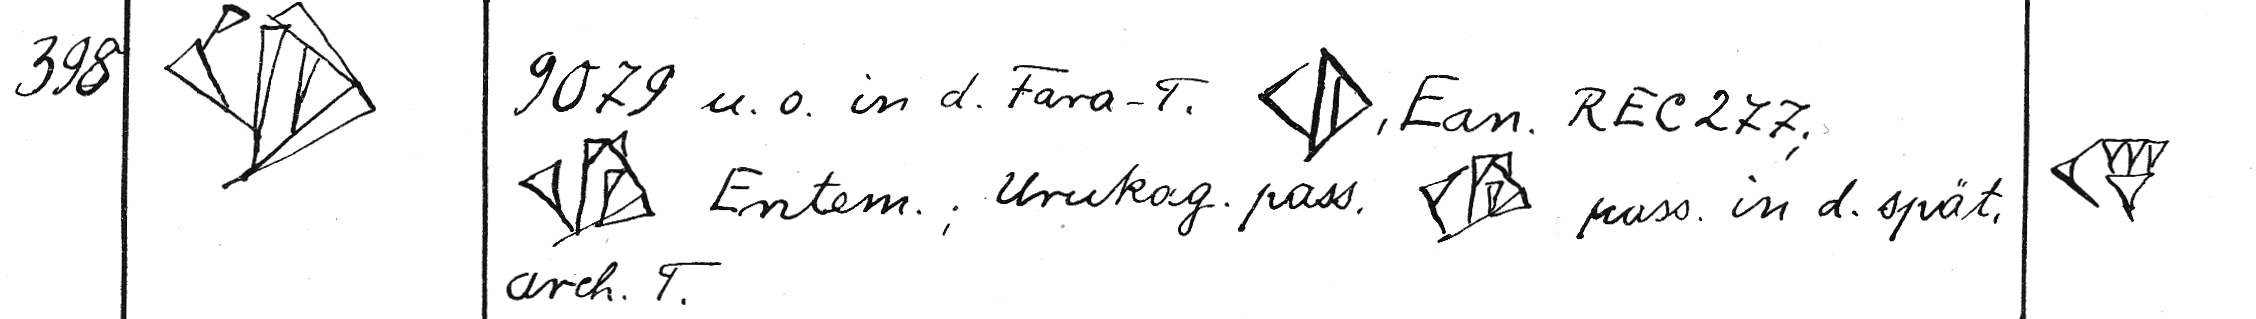 398 9079 u. o. in d. Fara-T. , Ean. REC 277;
Entem.; Urukag. pass. pass. in d. spät.
arch. T.